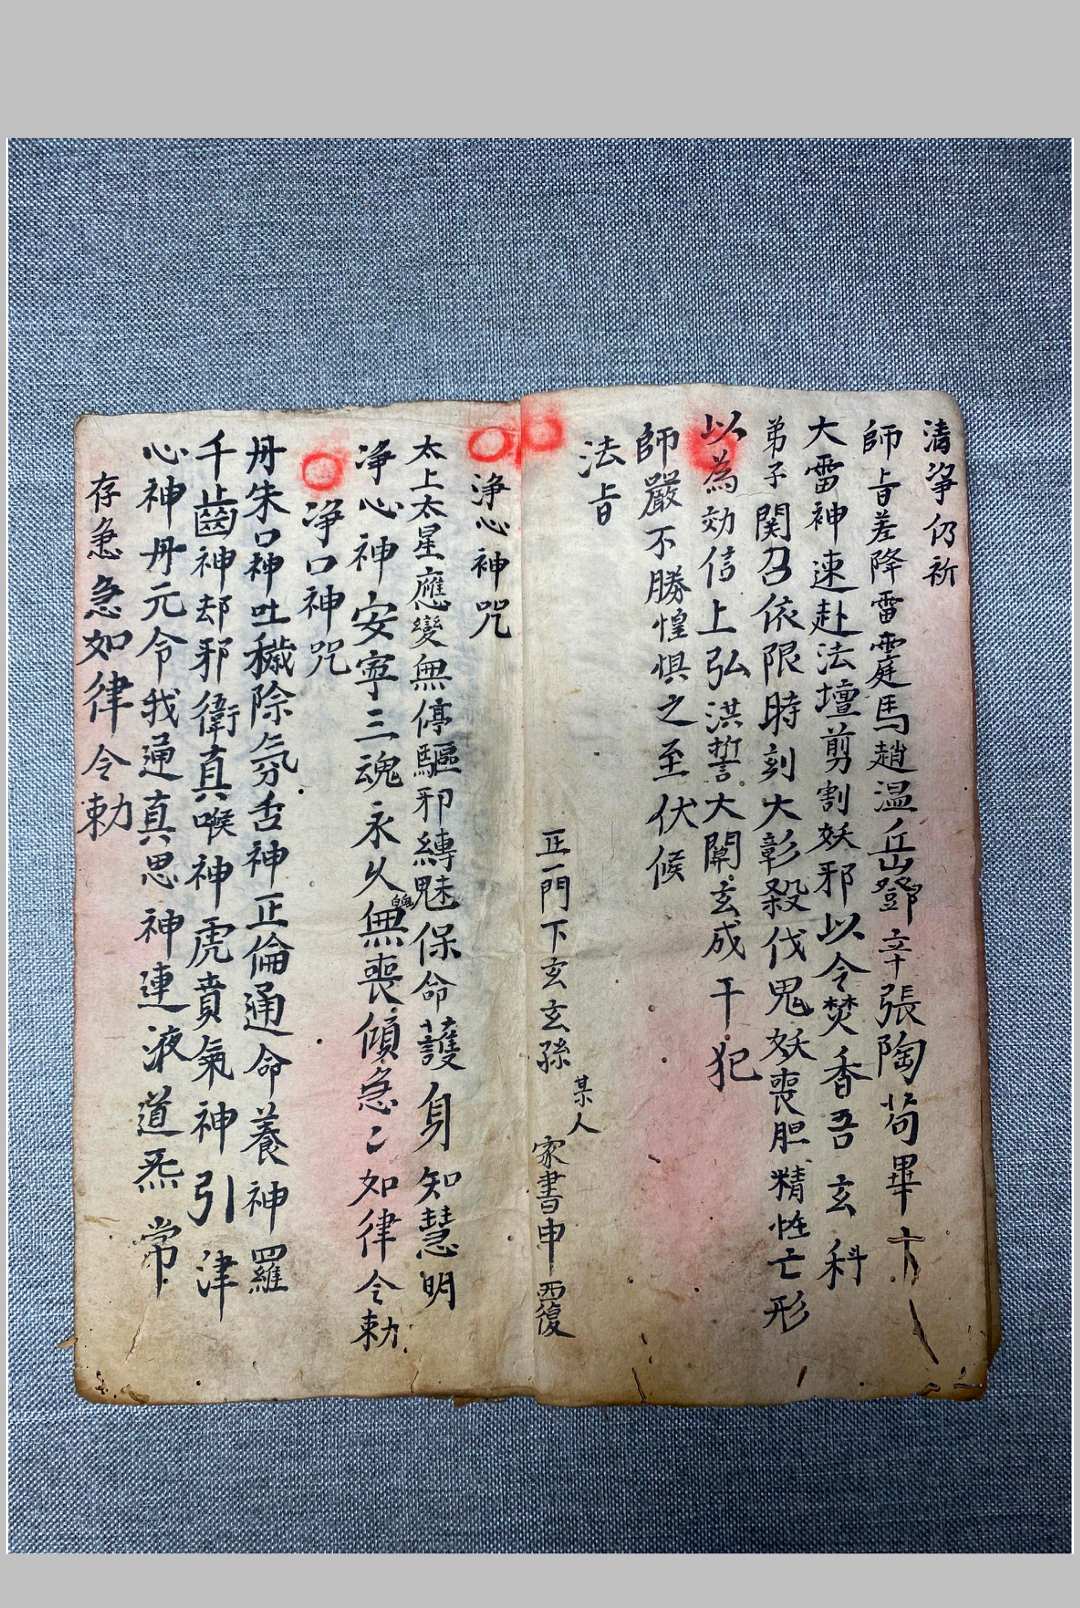 清淨仍祈
師旨差降雷霆馬趙温岳鄧辛張陶苟畢卞
大雷神速赴法壇剪割妖邪以令焚香吾玄科
弟子関召依限時刻大彰殺伐鬼妖喪胆精性亡形
以為効信上弘洪誓大開玄成干犯
師嚴不勝惶惧之至伏候
法旨
正一門下玄玄孫某人家書申西復
淨心神咒
太上太星應變無停驅邪縛魅保命護身知慧明
淨心神安寜三魂永久無喪傾急〻如律令勅
魄
淨口神咒
丹朱口神吐穢除氛舌神正倫通命養神羅
千齒神却邪衛真喉神虎賁氣神引津
心神丹元令我通真思神連液道炁常
存急急如律令勅